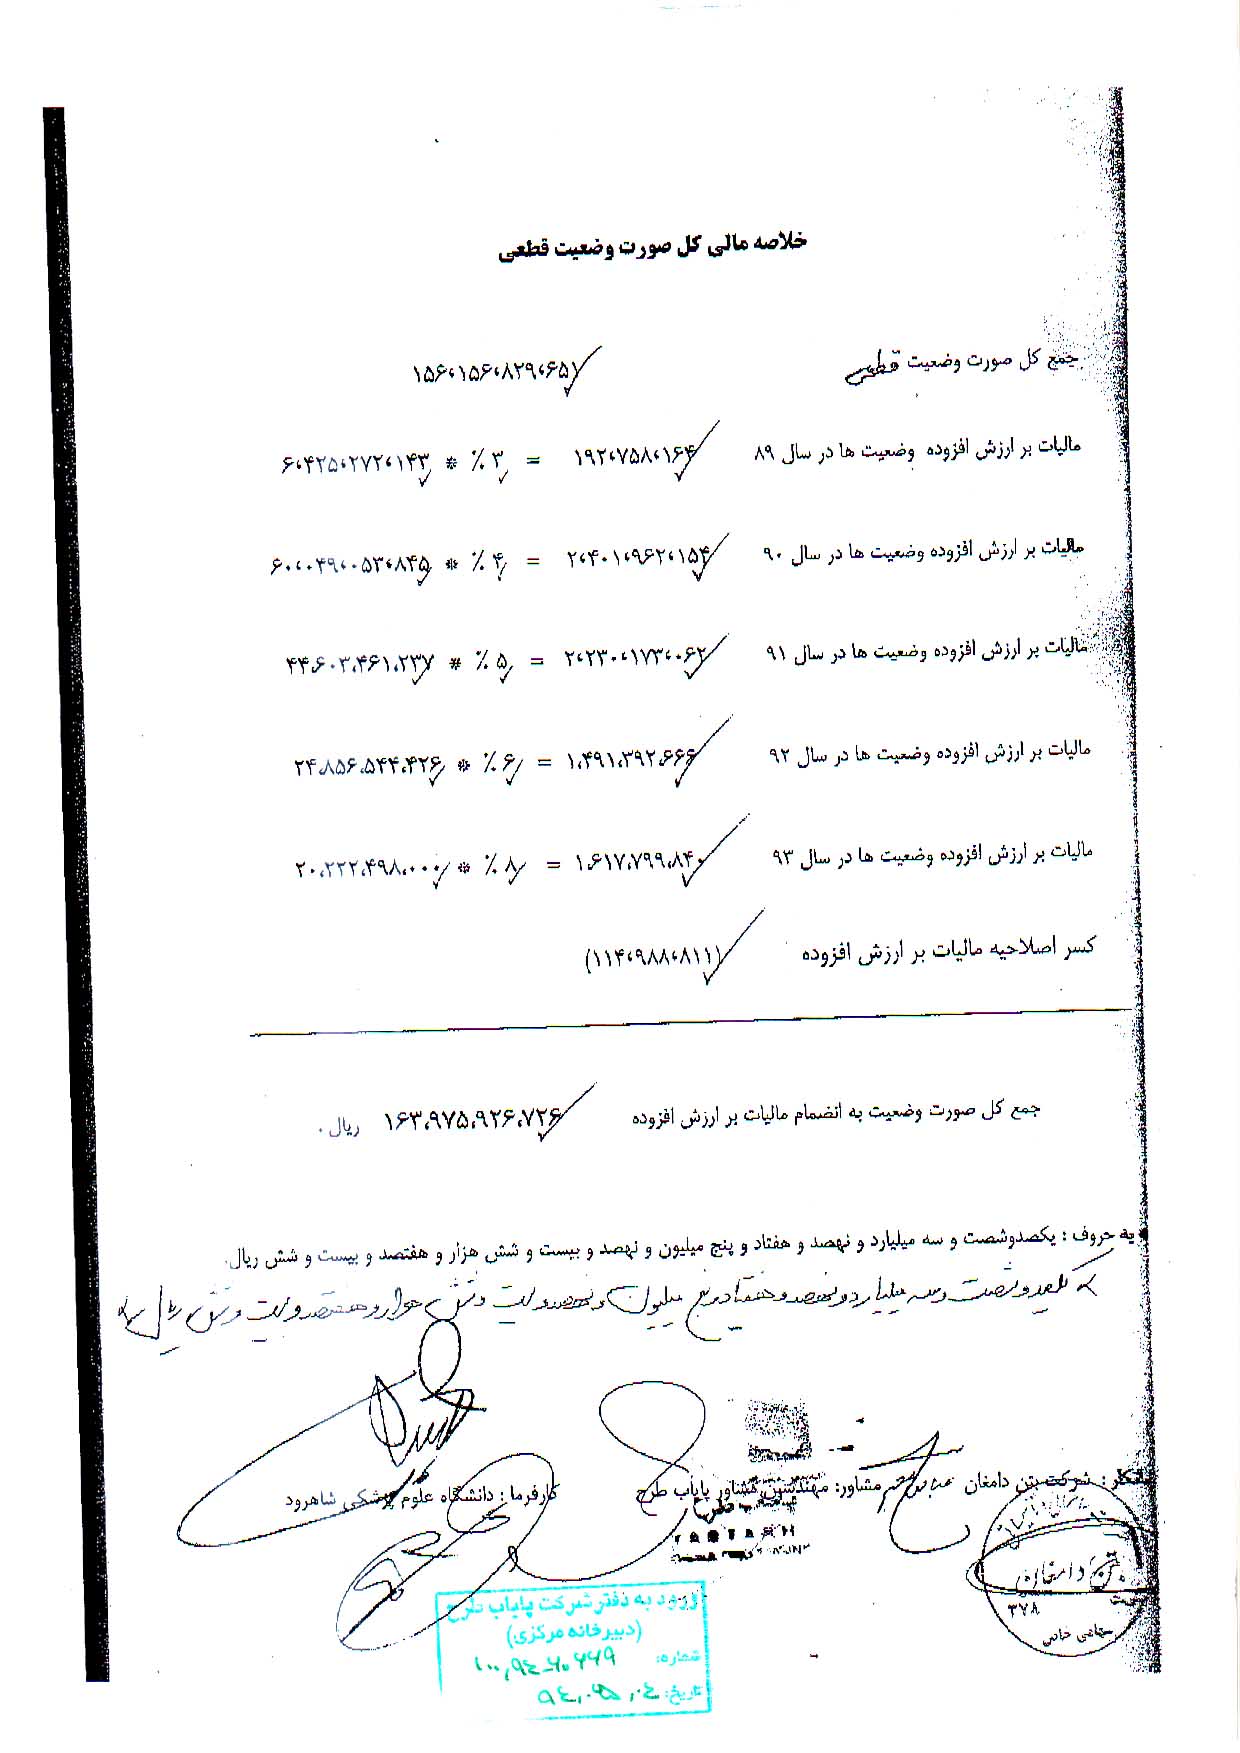 خلاصه مالی کل صورت وضعیت قطعی
جمع کل صورت وضعیت قطعی ۱۵۶،۱۵۶،۸۲۹،۶۵۱
مالیات بر ارزش افزوده وضعیت ها در سال ۸۹ ۱۹۲،۷۵۸،۱۶۴ = ۳ ٪ * ۶،۴۲۵،۲۷۲،۱۴۳
مالیات بر ارزش افزوده وضعیت ها در سال ۹۰ ۲،۴۰۱،۹۶۲،۱۵۴ = ۴ ٪ * ۶۰،۰۴۹،۰۵۳،۸۴۵
مالیات بر ارزش افزوده وضعیت ها در سال ۹۱ ۲،۲۳۰،۱۷۳،۰۶۲ = ۵ ٪ * ۴۴،۶۰۳،۴۶۱،۲۳۷
مالیات بر ارزش افزوده وضعیت ها در سال ۹۲ ۱،۴۹۱،۳۹۲،۶۶۶ = ۶ ٪ * ۲۴،۸۵۶،۵۴۴،۴۲۶
مالیات بر ارزش افزوده وضعیت ها در سال ۹۳ ۱،۶۱۷،۷۹۹،۸۴۰ = ۸ ٪ * ۲۰،۲۲۲،۴۹۸،۰۰۰
کسر اصلاحیه مالیات بر ارزش افزوده (۱۱۴،۹۸۸،۸۱۱)
جمع کل صورت وضعیت به انضمام مالیات بر ارزش افزوده ۱۶۳،۹۷۵،۹۲۶،۷۲۶ ریال .
به حروف : یکصدوشصت و سه میلیارد و نهصد و هفتاد و پنج میلیون و نهصد و بیست و شش هزار و هفتصد و بیست و شش ریال.
یکصد و شصت و سه میلیارد و نهصد و هفتاد و پنج میلیون و نهصد و بیست و شش هزار و هفتصد و بیست و شش ریال
شرکت بتن دامغان مشاور: مهندسین مشاور پایاب طرح کارفرما : دانشگاه علوم پزشکی شاهرود
بتن دامغان
۳۷۸
سهامی خاص
ورود به دفتر شرکت پایاب طرح
(دبیرخانه مرکزی)
شماره:
تاریخ: